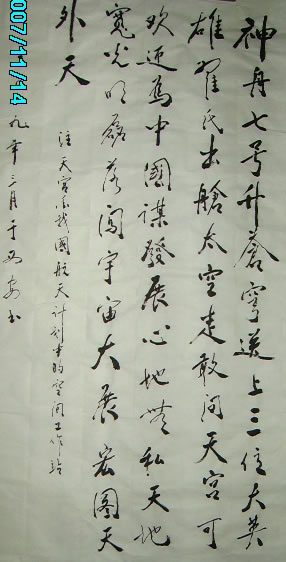 神舟七号升蒼穹送上三位大英
雄翟氏出艙太空走敢问天宫可
欢迎為中國謀發展心地無私天地
寬光明磊落闯宇宙大展宏图天
外天
注天宫系我國航天计划中的空间工作站
九年三月于西安书
007/11/14